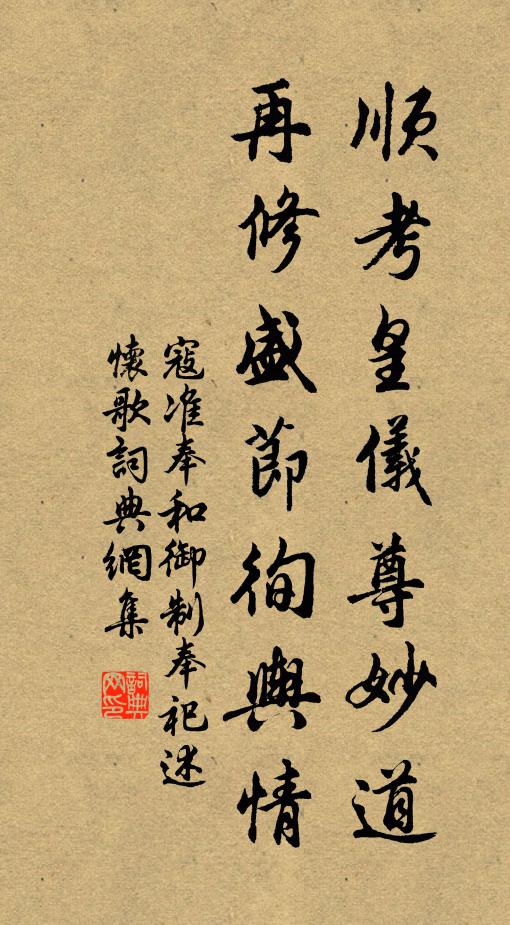 順考皇儀尊妙道
再修盛節徇輿情
寇准奉和御制奉祀述
懷歌詞典網集
詞典網印